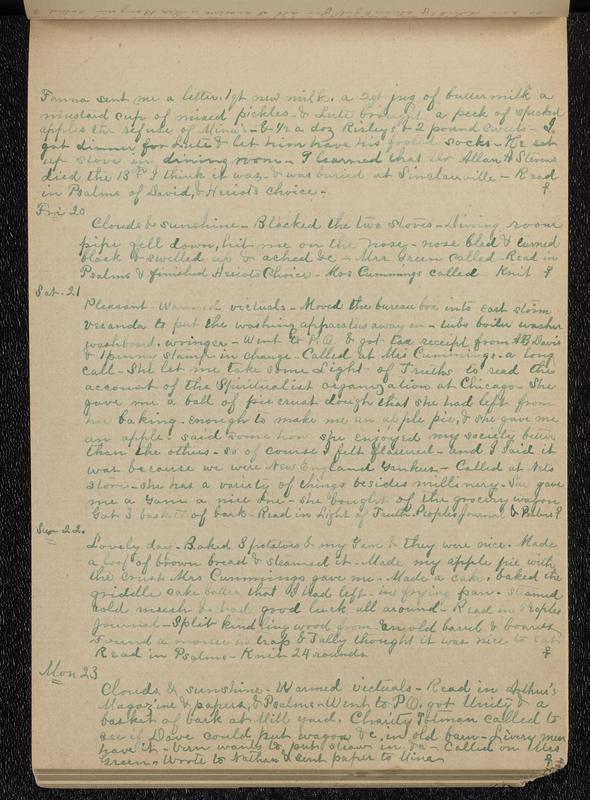 Fanna sent me a letter. 1 qt new milk. a 2 qt jug of buttermilk a
mustard cup of mixed pickles & Lute brought a peck of specked
apples the refuse of Mina's - & 1/2 a doz Risley's & 2 pound sweets - I
got dinner for Lute & let him have his footed socks - He set
up stove in dining room - I learned that Allan A Stevens
died the 13th I think it was - & was buried at Sinclairville - Read
in Psalms of David, & Heriot's Choice -
Fri 20
Clouds & sunshine - Blacked the two stoves - Dining room
pipe fell down, hit me on the nose - nose bled & turned
black & swelled up & ached &c - Mrs Green called - Read in
Psalms & finished Heriots Choice - Mrs Cummings called Knit
Sat. 21
Pleasant - Warmed victuals - Moved the bureau box into east storm
veranda to put the washing apparatus away in - tubs boiler washer
washboard. wringer - Went to P.O. & got tax receipt from A B Davis
& 1 penny stamp in change - Called at Mrs Cummings. a long
call - She let me take some Light of Truths to read the
account of the Spiritualist organization at Chicago - She
gave me a ball of pie crust dough that she had left from
her baking. enough to make me an apple pie, & she gave me
an apple. said some how she enjoyed my society better
than the others - so of course I felt flattered - and I said it
was because we were New England Yankees - Called at
store - she has a variety of things besides millinery - She gave
me a Yam a nice one - she bought of the grocery wagon
Got 3 baskets of bark - Read in Light of Truth. Peoples Journal, & Psalms
Sun 22.
Lovely day - Baked 3 potatoes & my Yam & they were nice. Made
a loaf of brown bread & steamed it - Made my apple pie with
the crust Mrs Cummings gave me - Made a cake. baked the
griddle cake batter that I had left - in frying pan - steamed
cold meech & had good luck all around - Read in Peoples
Journal - Split kindling wood from an old barrel & boards
Found a mouse in trap & Tally thought it was nice to eat
Read in Psalms - Knit 24 rounds
Mon 23
Clouds & sunshine - Warmed victuals - Read in Arthur's
Magazine & papers, & Psalms - Went to P.O. got Unity & a
basket of bark at Mill yard. Charity Tolman called to
see if Dave could put wagon &c, in old barn - Livery men
have it - Vern wants to put straw in &c - Called on Mrs
Green - Wrote to Nathan & sent paper to Mina